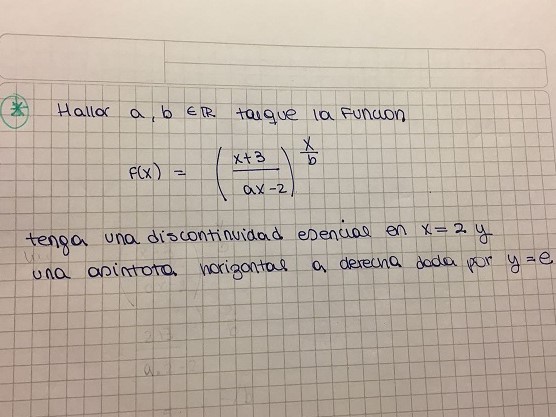 * Hallar a, b ∈ ℝ tal que la Función
f(x) = ((x+3)/(ax-2))^(x/b)
tenga una discontinuidad esencial en x=2 y
una asíntota horizontal a derecha dada por y=e